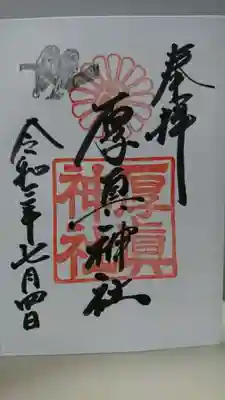 奉拝
厚真神社
厚真
神社
令和三年七月四日